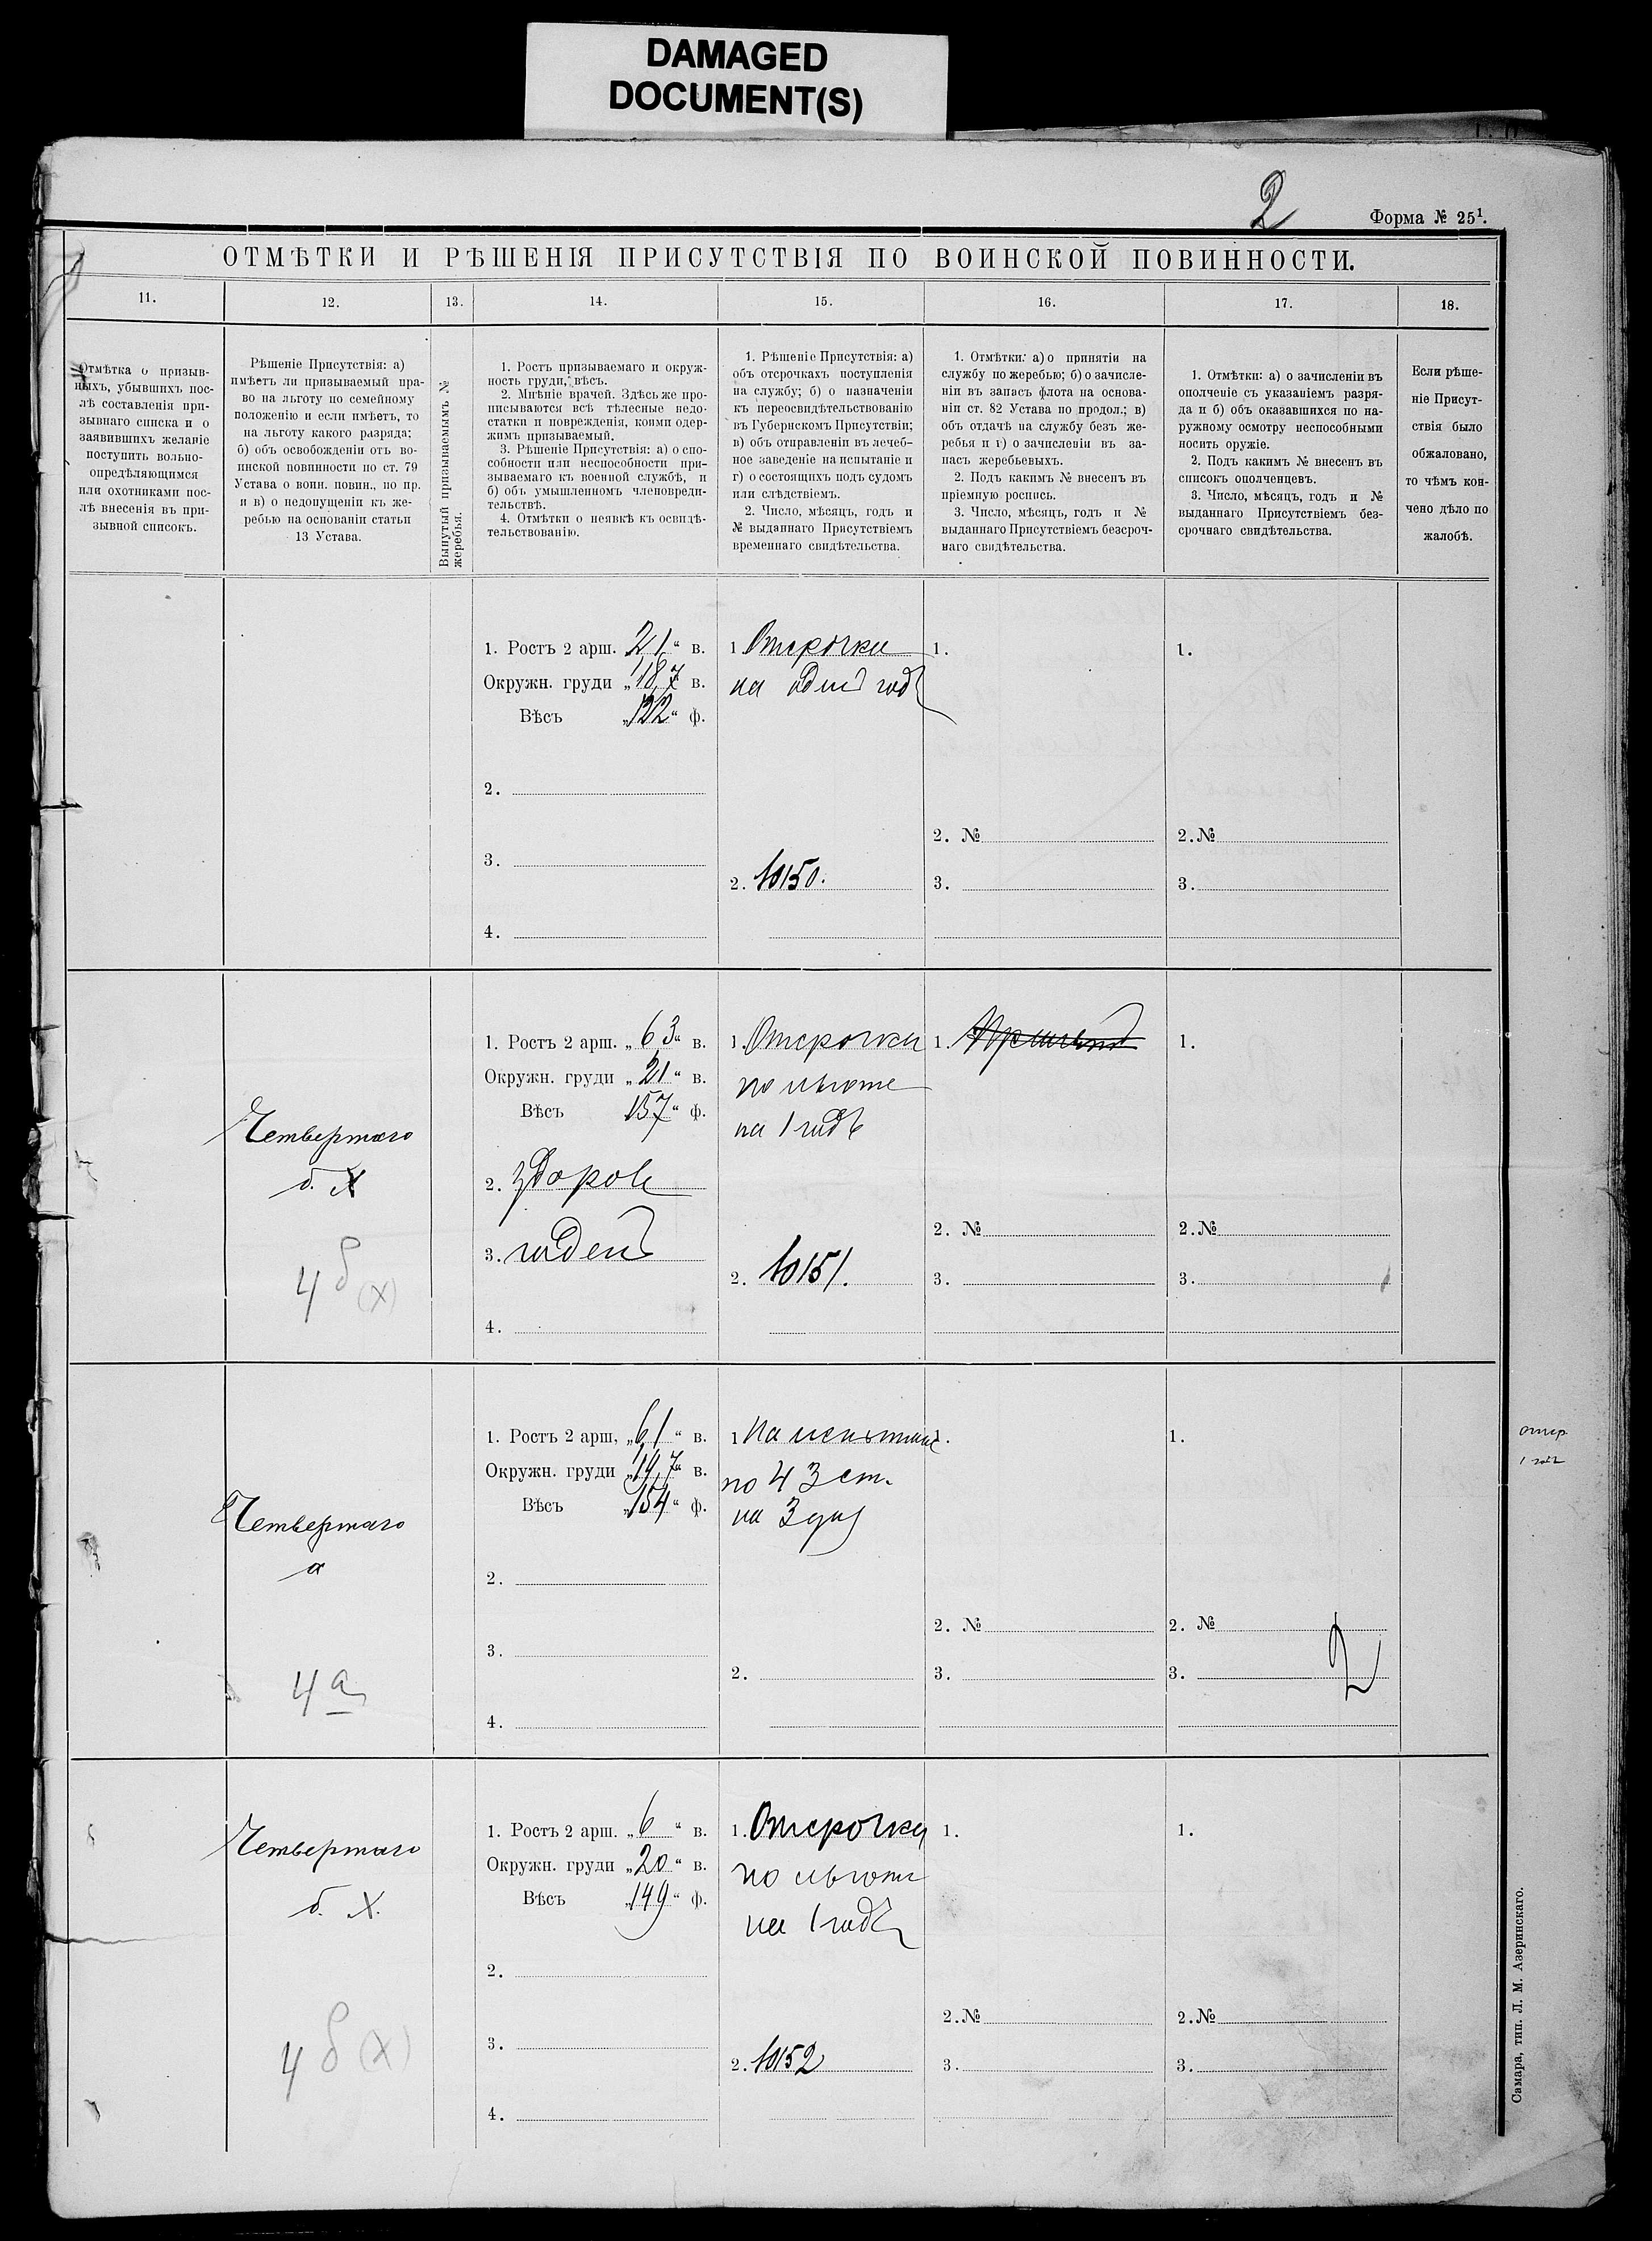 DAMAGED
DOCUMENT(S)
2
Форма № 25¹.
ОТМѢТКИ И РѢШЕНІЯ ПРИСУТСТВІЯ ПО ВОИНСКОЙ ПОВИННОСТИ.
11.
12.
13.
14.
15.
16.
17.
18.
Отмѣтка о призыв-
ныхъ, убывшихъ пос-
лѣ составленія при-
зывнаго списка и о
заявившихъ желаніе
поступить вольно-
опредѣляющимся
или охотниками пос-
лѣ внесенія въ при-
зывной списокъ.
Рѣшеніе Присутствія: а)
имѣетъ ли призываемый пра-
во на льготу по семейному
положенію и если имѣетъ, то
на льготу какого разряда;
б) объ освобожденіи отъ во-
инской повинности по ст. 79
Устава о воин. повин., по пр.
и в) о недопущеніи къ же-
ребью на основаніи статьи
13 Устава.
Вынутый призываемымъ №
жеребья.
1. Ростъ призываемаго и окруж-
ность груди, вѣсъ.
2. Мнѣніе врачей. Здѣсь же про-
писываются всѣ тѣлесные недо-
статки и поврежденія, коими одер-
жимъ призываемый.
3. Рѣшеніе Присутствія: а) о спо-
собности или неспособности при-
зываемаго къ военной службѣ, и
б) объ умышленномъ членовреди-
тельствѣ.
4. Отмѣтки о неявкѣ къ освидѣ-
тельствованію.
1. Рѣшеніе Присутствія: а)
объ отсрочкахъ поступленія
на службу; б) о назначеніи
къ переосвидѣтельствованію
въ Губернскомъ Присутствіи;
в) объ отправленіи въ лечеб-
ное заведеніе на испытаніе и
г) о состоящихъ подъ судомъ
или слѣдствіемъ.
2. Число, мѣсяцъ, годъ и
№ выданнаго Присутствіемъ
временнаго свидѣтельства.
1. Отмѣтки: а) о принятіи на
службу по жеребью; б) о зачисле-
ніи въ запасъ флота на основа-
ніи ст. 82 Устава по продол.; в)
объ отдачѣ на службу безъ же-
ребья и г) о зачисленіи въ за-
пасъ жеребьевыхъ.
2. Подъ какимъ № внесенъ въ
пріемную роспись.
3. Число, мѣсяцъ, годъ и №
выданнаго Присутствіемъ безсроч-
наго свидѣтельства.
1. Отмѣтки: а) о зачисленіи въ
ополченіе съ указаніемъ разря-
да и б) объ оказавшихся по на-
ружному осмотру неспособными
носить оружіе.
2. Подъ какимъ № внесенъ въ
списокъ ополченцевъ.
3. Число, мѣсяцъ, годъ и №
выданнаго Присутствіемъ без-
срочнаго свидѣтельства.
Если рѣше-
ніе Присут-
ствія было
обжаловано,
то чѣмъ кон-
чено дѣло по
жалобѣ.
1. Ростъ 2 арш. „2 1/ “ в.
Окружн. груди „18,7 в.
Вѣсъ „132“ ф.
2.
3.
4.
1 Отсрочки
на один годъ
2. 10150.
1.
2. №
3.
1.
2. №
3.
Четвертаго
б. X
4 б (X)
1. Ростъ 2 арш. „ 6 3“ в.
Окружн. груди „ 21 “ в.
Вѣсъ 157“ ф.
2. здоровъ
3. годенъ
4.
1. Отсрочки
по льготе
на 1 годъ
2. 10151.
1.
2. №
3.
1.
2. №
3.
Четвертаго
а
4 а
1. Ростъ 2 арш, „6,1 “ в.
Окружн. груди „19,7“ в.
Вѣсъ „154“ ф.
2.
3.
4.
1 На испытание
по 43 ст.
на 3 дня
2.
2. №
3.
1.
2. №
3.
2
отср
1 годъ
Четвертаго
б. X.
4 б (X)
1. Ростъ 2 арш. „ 6 “ в.
Окружн. груди „20“ в.
Вѣсъ „149“ ф.
2.
3.
4.
1. Отсрочки
по льготе
на 1 годъ
2. 10152
1.
2. №
3.
1.
2. №
3.
Самара, тип. Л. М. Азеринскаго.